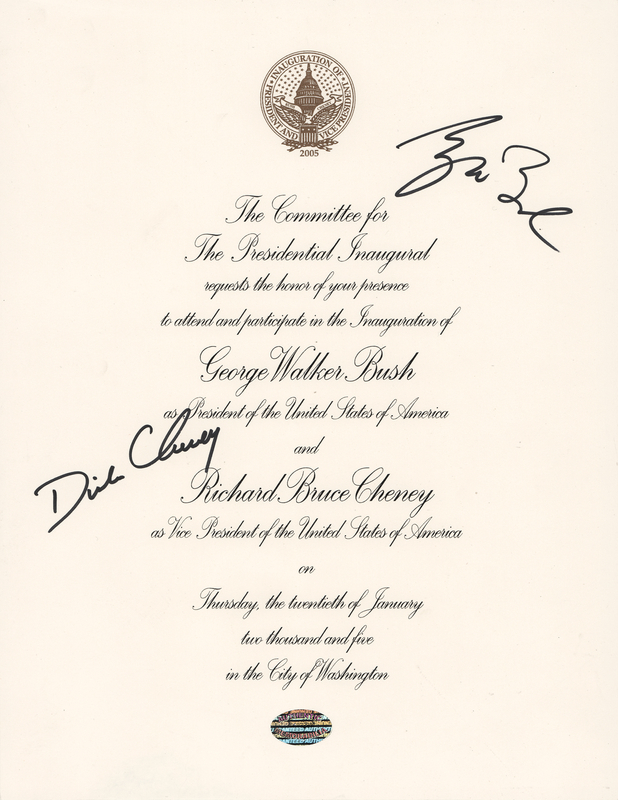 INAUGURATION OF PRESIDENT AND VICE PRESIDENT
2005
The Committee for
The Presidential Inaugural
requests the honor of your presence
to attend and participate in the Inauguration of
George Walker Bush
as President of the United States of America
and
Dick Cheney
Richard Bruce Cheney
as Vice President of the United States of America
on
Thursday, the twentieth of January
two thousand and five
in the City of Washington